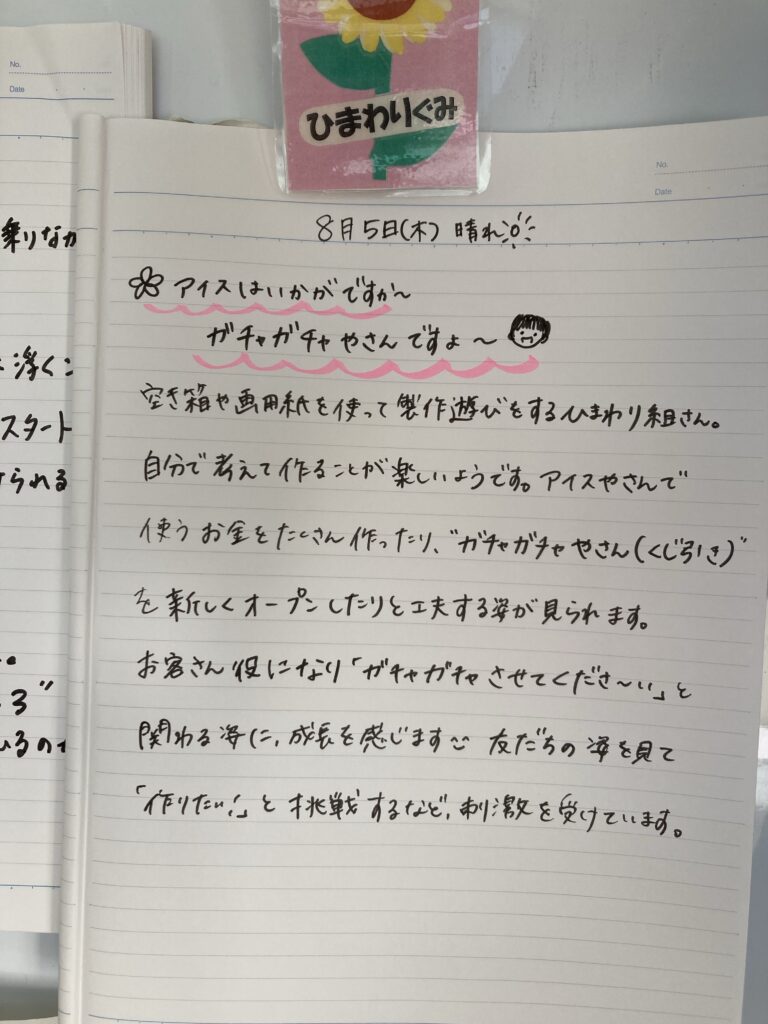 No.
Date
乗りなが
浮くこ
スタート
られる
ろ"
いるの
ひまわりぐみ
No.
Date
8月5日(木) 晴れ
アイスはいかがですか〜
ガチャガチャやさんですよ〜
空き箱や画用紙を使って製作遊びをするひまわり組さん。
自分で考えて作ることが楽しいようです。アイスやさんで
使うお金をたくさん作ったり、"ガチャガチャやさん(くじ引き)"
を新しくオープンしたりと工夫する姿が見られます。
お客さん役になり「ガチャガチャさせてくださ〜い」と
関わる姿に、成長を感じます 友だちの姿を見て
「作りたい!」と挑戦するなど、刺激を受けています。